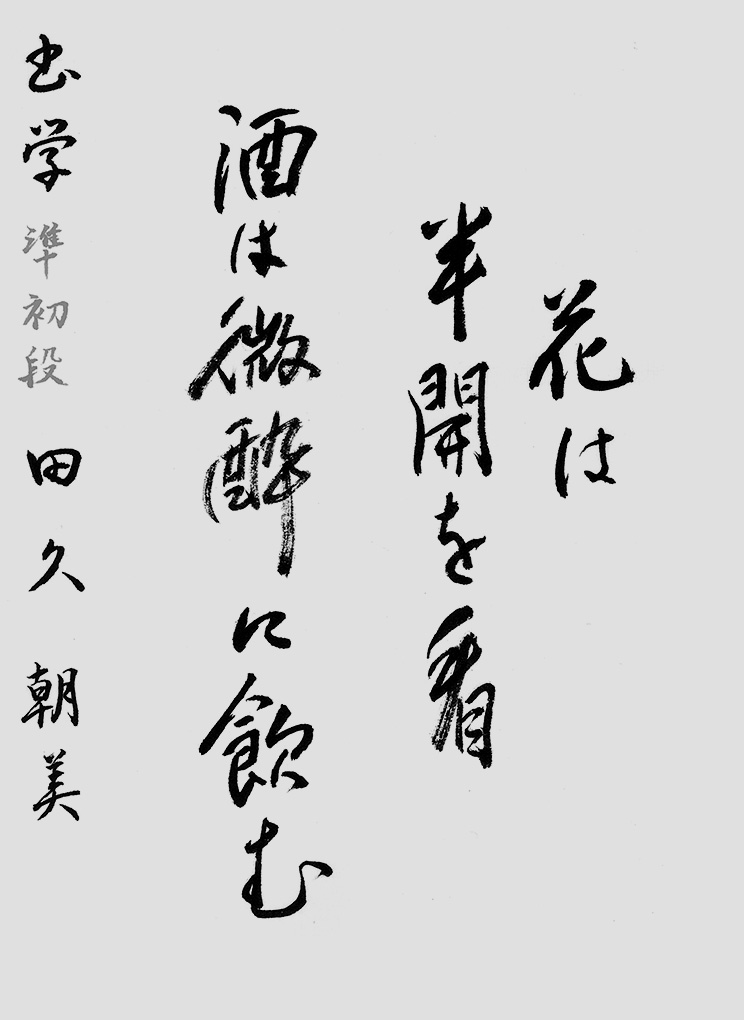 花は
半開を看
酒は微酔に飲む
書学 準初段 田久 朝美